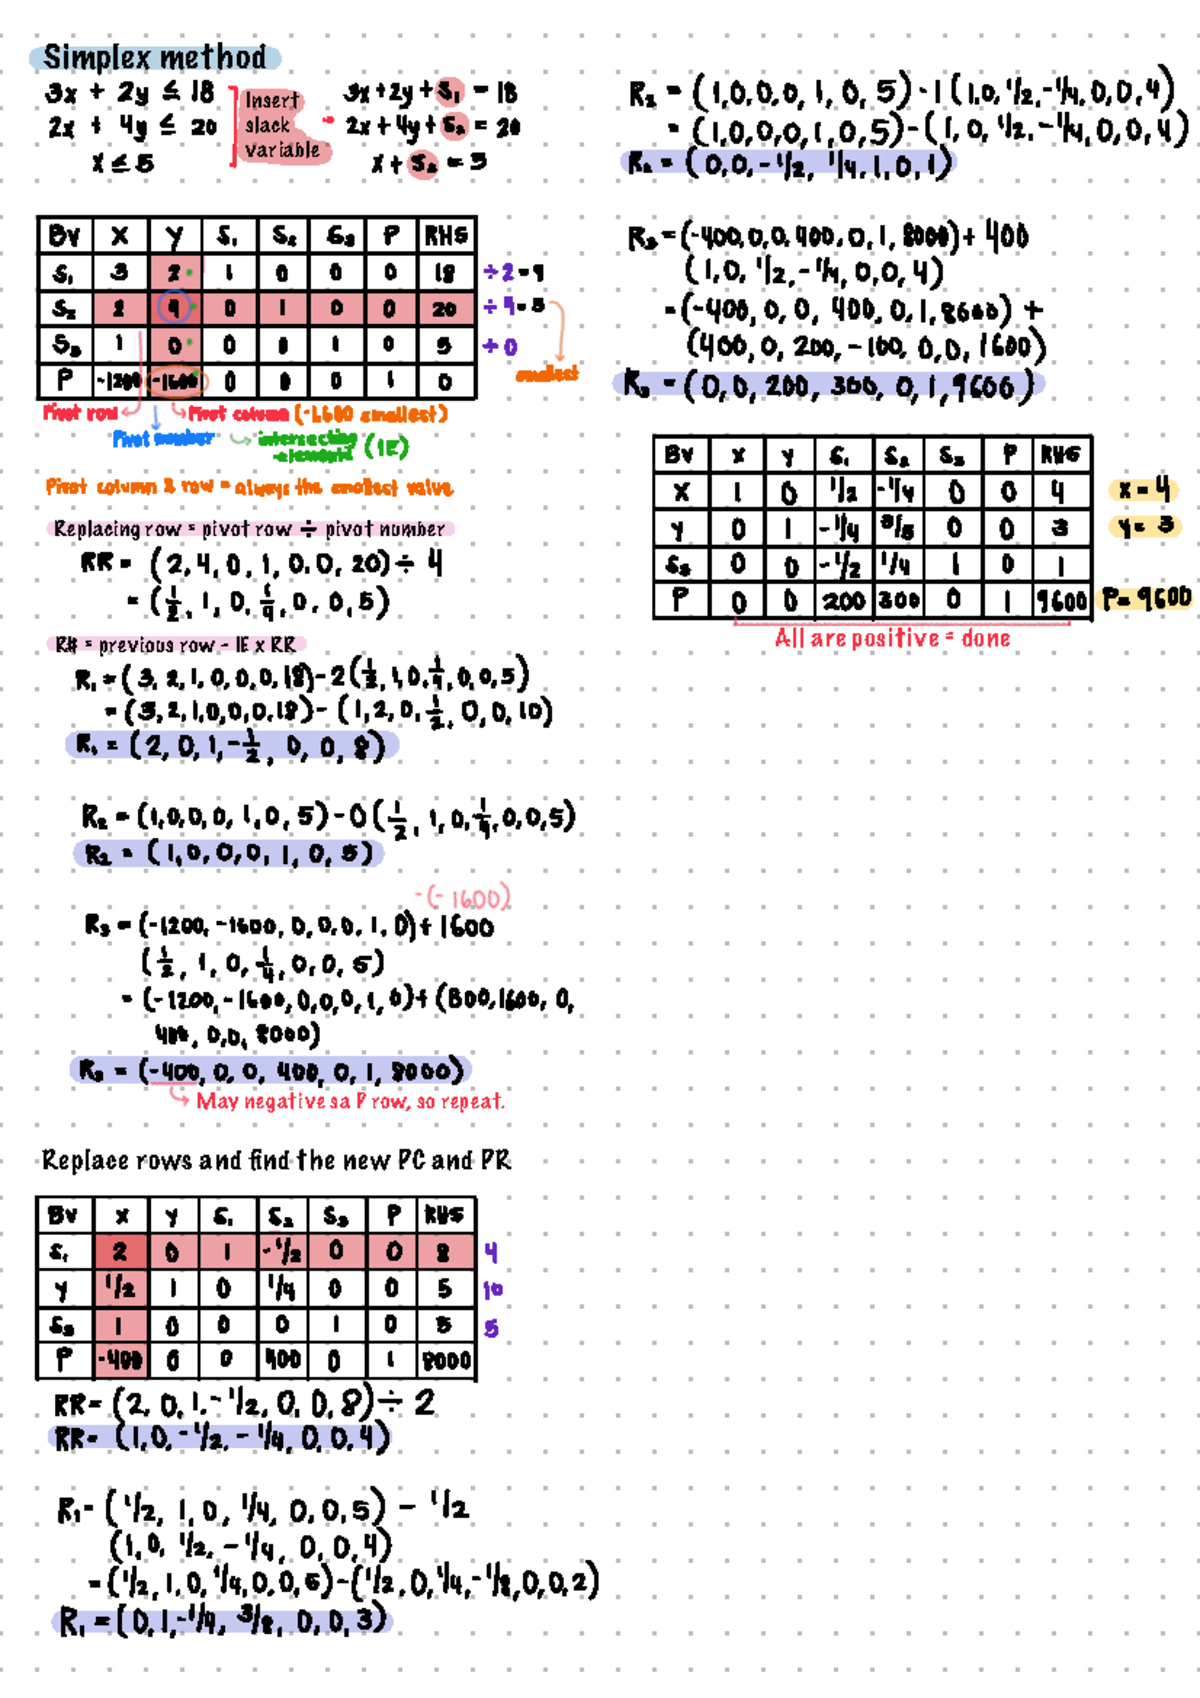 Simplex method
3x + 2y ≤ 18
2x + 4y ≤ 20
x ≤ 5
Insert
slack
variable
3x + 2y + S₁ = 18
2x + 4y + S₂ = 20
x + S₃ = 5
BV X Y S₁ S₂ S₃ P RHS
S₁ 3 2 1 0 0 0 18 ÷ 2 = 9
S₂ 2 4 0 1 0 0 20 ÷ 4 = 5
S₃ 1 0 0 0 1 0 5 ÷ 0
P -1200 -1600 0 0 0 1 0
smallest
Pivot row
Pivot column (-1600 smallest)
Pivot number
intersecting
elements (IE)
Pivot column & row = always the smallest value
Replacing row = pivot row ÷ pivot number
RR = (2, 4, 0, 1, 0, 0, 20) ÷ 4
= (1/2, 1, 0, 1/4, 0, 0, 5)
R# = previous row - IE x RR
R₁ = (3, 2, 1, 0, 0, 0, 18) - 2 (1/2, 1, 0, 1/4, 0, 0, 5)
= (3, 2, 1, 0, 0, 0, 18) - (1, 2, 0, 1/2, 0, 0, 10)
R₁ = (2, 0, 1, -1/2, 0, 0, 8)
R₂ = (1, 0, 0, 0, 1, 0, 5) - 0 (1/2, 1, 0, 1/4, 0, 0, 5)
R₂ = (1, 0, 0, 0, 1, 0, 5)
-(-1600)
R₃ = (-1200, -1600, 0, 0, 0, 1, 0) + 1600
(1/2, 1, 0, 1/4, 0, 0, 5)
= (-1200, -1600, 0, 0, 0, 1, 0) + (800, 1600, 0,
400, 0, 0, 8000)
R₃ = (-400, 0, 0, 400, 0, 1, 8000)
May negative sa P row, so repeat.
Replace rows and find the new PC and PR
BV X Y S₁ S₂ S₃ P RHS
S₁ 2 0 1 -1/2 0 0 8 4
Y 1/2 1 0 1/4 0 0 5 10
S₃ 1 0 0 0 1 0 5 5
P -400 0 0 400 0 1 8000
RR = (2, 0, 1, -1/2, 0, 0, 8) ÷ 2
RR = (1, 0, -1/2, -1/4, 0, 0, 4)
R₁ = (1/2, 1, 0, 1/4, 0, 0, 5) - 1/2
(1, 0, 1/2, -1/4, 0, 0, 4)
= (1/2, 1, 0, 1/4, 0, 0, 5) - (1/2, 0, 1/4, -1/8, 0, 0, 2)
R₁ = (0, 1, -1/4, 3/8, 0, 0, 3)
R₂ = (1, 0, 0, 0, 1, 0, 5) - 1 (1, 0, 1/2, -1/4, 0, 0, 4)
= (1, 0, 0, 0, 1, 0, 5) - (1, 0, 1/2, -1/4, 0, 0, 4)
R₂ = (0, 0, -1/2, 1/4, 1, 0, 1)
R₃ = (-400, 0, 0, 400, 0, 1, 8000) + 400
(1, 0, 1/2, -1/4, 0, 0, 4)
= (-400, 0, 0, 400, 0, 1, 8000) +
(400, 0, 200, -100, 0, 0, 1600)
R₃ = (0, 0, 200, 300, 0, 1, 9600)
BV X Y S₁ S₂ S₃ P RHS
X 1 0 1/2 -1/4 0 0 4 x = 4
Y 0 1 -1/4 3/8 0 0 3 y = 3
S₃ 0 0 -1/2 1/4 1 0 1
P 0 0 200 300 0 1 9600 P = 9600
All are positive = done